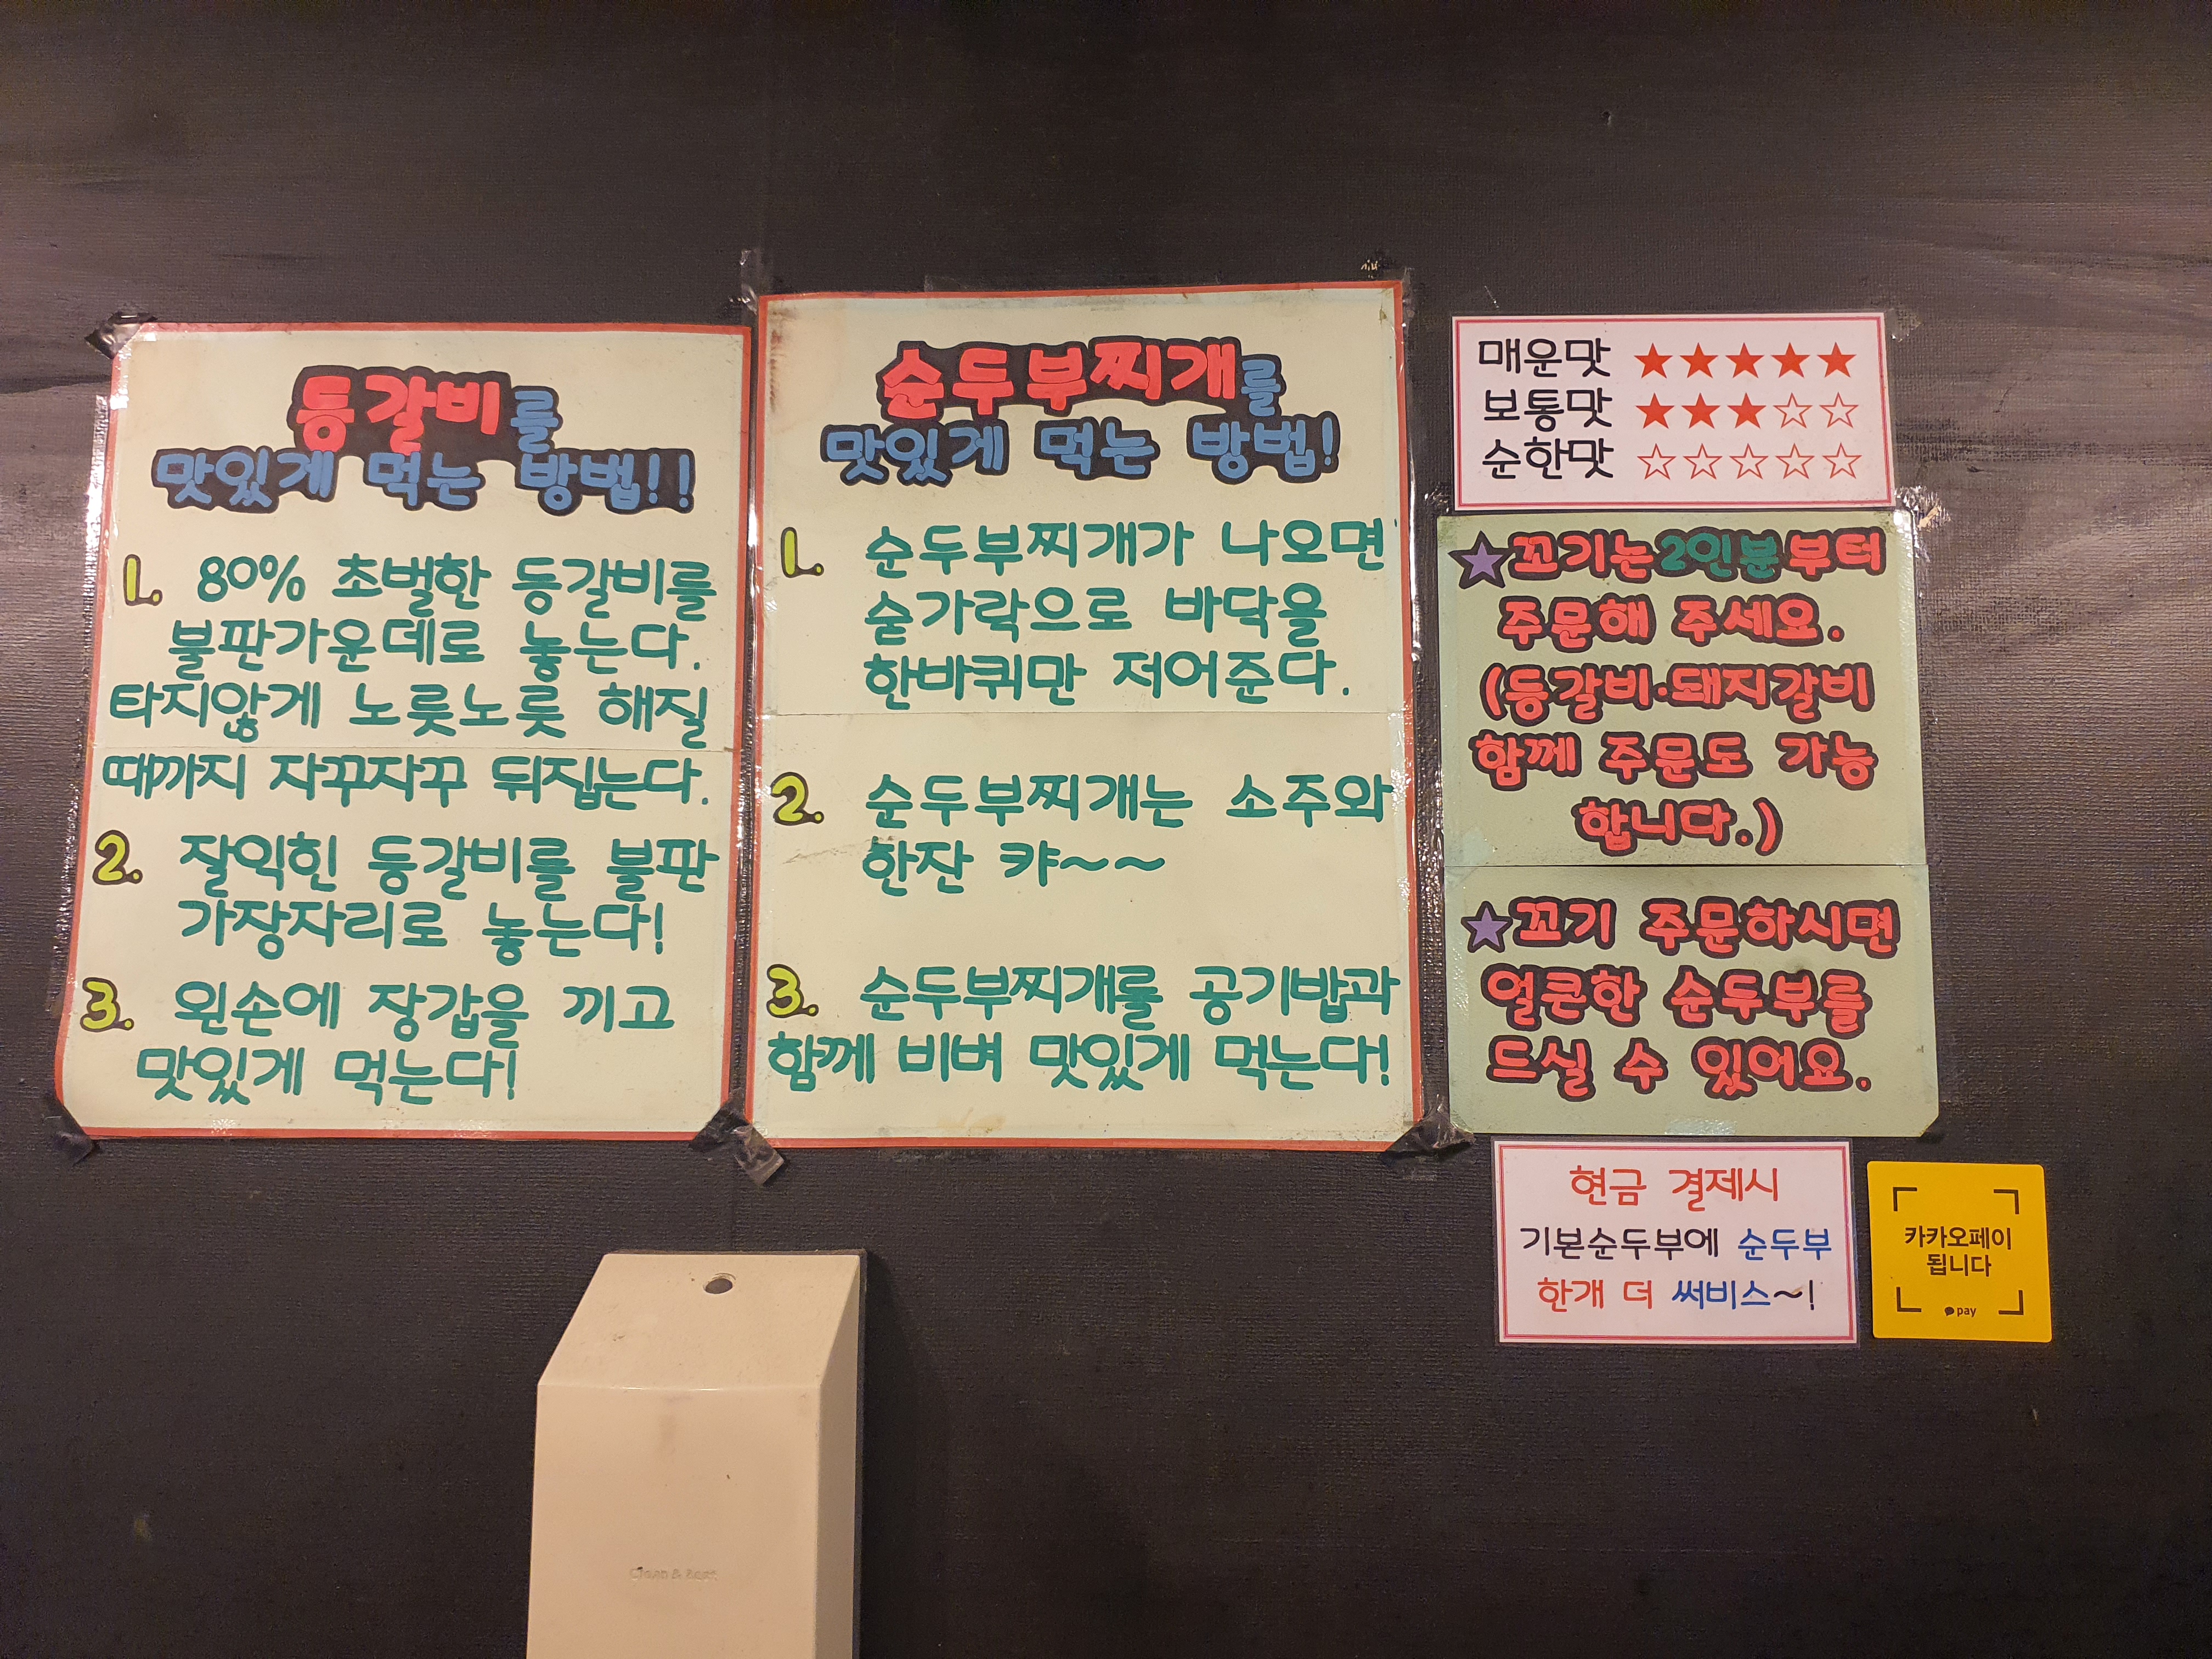 등갈비를
맛있게 먹는 방법!!
1. 80% 초벌한 등갈비를
불판가운데로 놓는다.
타지않게 노릇노릇 해질
때까지 자꾸자꾸 뒤집는다.
2. 잘익힌 등갈비를 불판
가장자리로 놓는다!
3. 왼손에 장갑을 끼고
맛있게 먹는다!
순두부찌개를
맛있게 먹는 방법!
1. 순두부찌개가 나오면
숟가락으로 바닥을
한바퀴만 저어준다.
2. 순두부찌개는 소주와
한잔 캬~~
3. 순두부찌개를 공기밥과
함께 비벼 맛있게 먹는다!
매운맛 ★★★★★
보통맛 ★★★☆☆
순한맛 ☆☆☆☆☆
★꼬기는 2인분부터
주문해 주세요.
(등갈비·돼지갈비
함께 주문도 가능
합니다.)
★꼬기 주문하시면
얼큰한 순두부를
드실 수 있어요.
현금 결제시
기본순두부에 순두부
한개 더 써비스~!
카카오페이
됩니다
pay